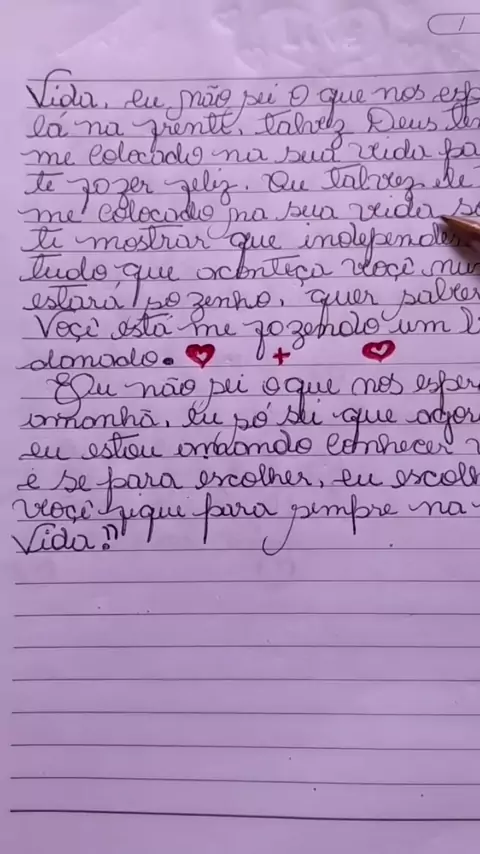 Vida, eu não sei o que nos esp
lá na frente, talvez Deus te
me colocado na sua vida pa
te fazer feliz. Ou talvez ele
me colocado na sua vida só
ti mostrar que independe
tudo que aconteça voçê nun
estará sozenho, quer saber
Voçê está me fazendo um l
domado. ❤ + ❤
Eu não sei o que nos esper
amanhã, eu só sei que agor
eu estou amando conhecer v
e se para escolher, eu escol
voçê fique para sempre na
Vida!"